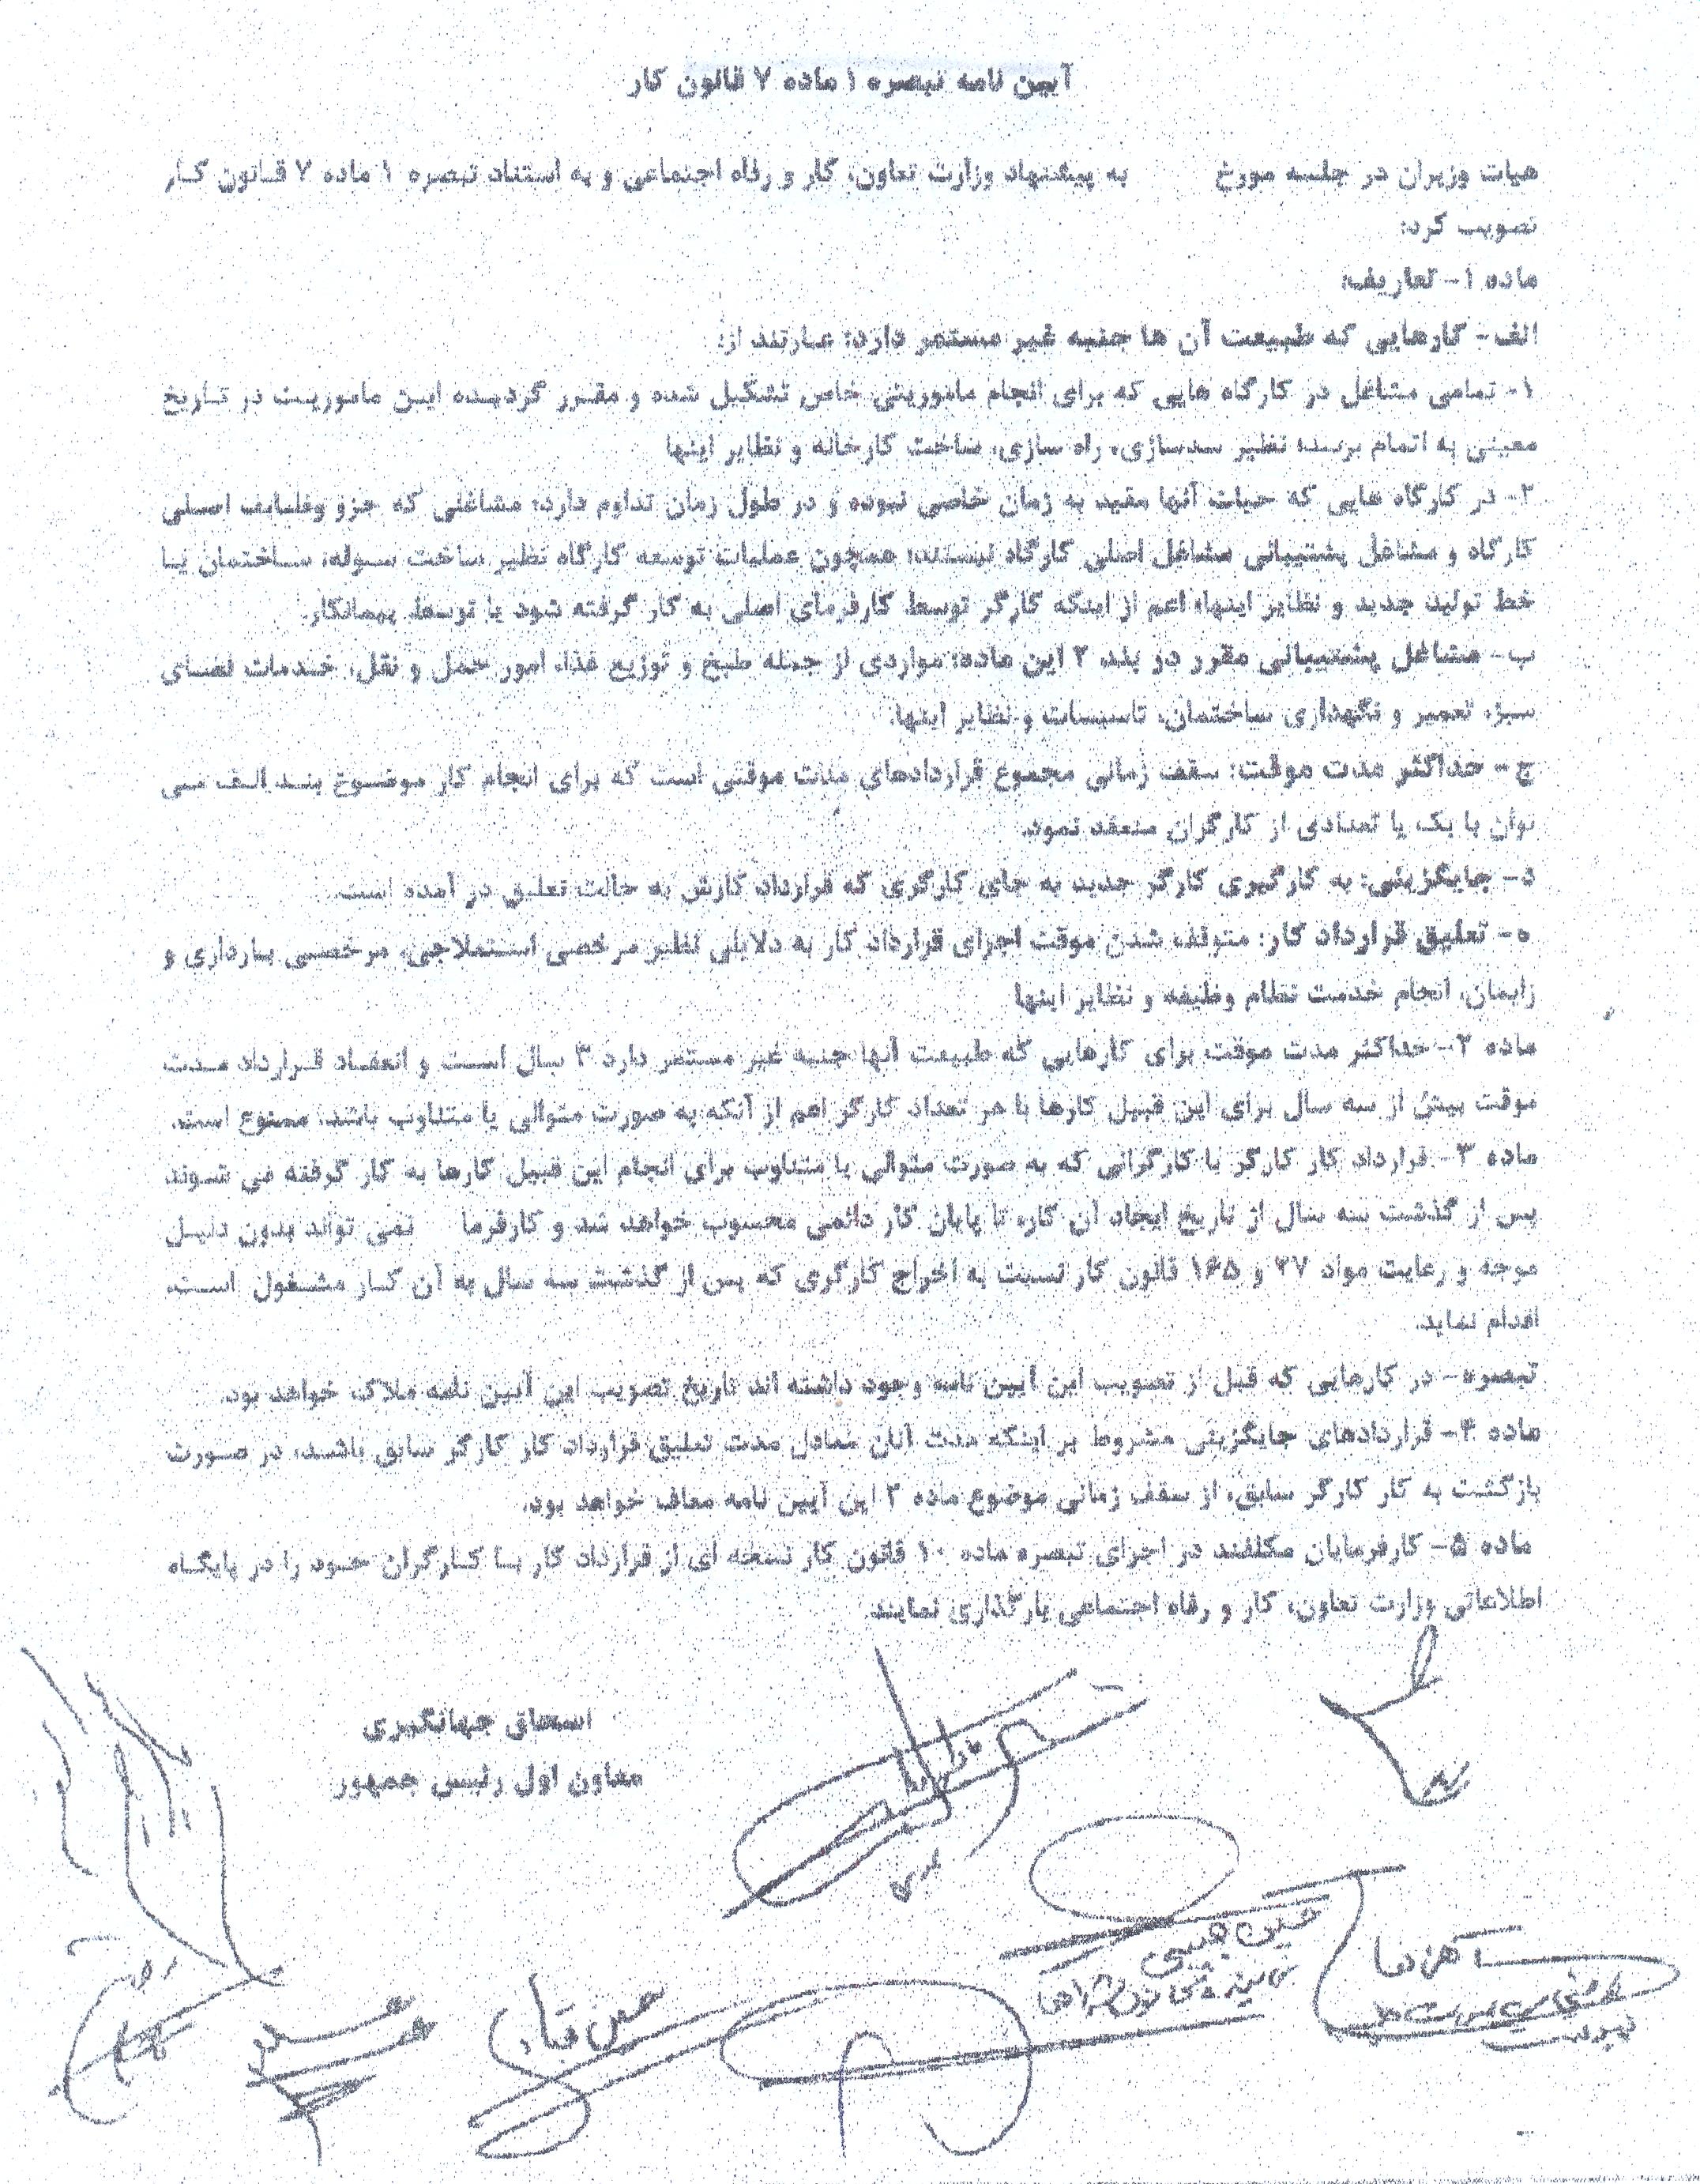 آیین نامه تبصره ۱ ماده ۷ قانون کار
هیات وزیران در جلسه مورخ به پیشنهاد وزارت تعاون، کار و رفاه اجتماعی و به استناد تبصره ۱ ماده ۷ قانون کار
تصویب کرد:
ماده ۱- تعاریف:
الف- کارهایی که طبیعت آن ها جنبه غیر مستمر دارد؛ عبارتند از:
۱- تمامی مشاغل در کارگاه هایی که برای انجام ماموریتی خاص تشکیل شده و مقرر گردیده این ماموریت در تاریخ
معینی به اتمام برسد؛ نظیر سدسازی، راه سازی، ساخت کارخانه و نظایر اینها
۲- در کارگاه هایی که حیات آنها مقید به زمان خاصی نبوده و در طول زمان تداوم دارد؛ مشاغلی که جزو وظایف اصلی
کارگاه و مشاغل پشتیبانی مشاغل اصلی کارگاه نیستند؛ همچون عملیات توسعه کارگاه نظیر ساخت سوله، ساختمان یا
خط تولید جدید و نظایر اینها، اعم از اینکه کارگر توسط کارفرمای اصلی به کار گرفته شود یا توسط پیمانکار.
ب- مشاغل پشتیبانی مقرر در بند ۲ این ماده؛ مواردی از جمله طبخ و توزیع غذا، امور حمل و نقل، خدمات فضای
سبز، تعمیر و نگهداری ساختمان، تاسیسات و نظایر اینها.
ج- حداکثر مدت موقت: سقف زمانی مجموع قراردادهای مدت موقتی است که برای انجام کار موضوع بند الف می
توان با یک یا تعدادی از کارگران منعقد نمود.
د- جایگزینی: به کارگیری کارگر جدید به جای کارگری که قرارداد کارش به حالت تعلیق در آمده است.
ه- تعلیق قرارداد کار: متوقف شدن موقت اجرای قرارداد کار به دلایلی نظیر مرخصی استعلاجی، مرخصی بارداری و
زایمان، انجام خدمت نظام وظیفه و نظایر اینها
ماده ۲- حداکثر مدت موقت برای کارهایی که طبیعت آنها جنبه غیر مستمر دارد ۳ سال است و انعقاد قرارداد مدت
موقت بیش از سه سال برای این قبیل کارها با هر تعداد کارگر اعم از آنکه به صورت متوالی یا متناوب باشد، ممنوع است.
ماده ۳- قرارداد کار کارگر یا کارگرانی که به صورت متوالی یا متناوب برای انجام این قبیل کارها به کار گرفته می شوند
پس از گذشت سه سال از تاریخ ایجاد آن کار، تا پایان کار دائمی محسوب خواهد شد و کارفرما نمی تواند بدون دلیل
موجه و رعایت مواد ۲۷ و ۱۶۵ قانون کار نسبت به اخراج کارگری که پس از گذشت سه سال به آن کار مشغول است،
اقدام نماید.
تبصره- در کارهایی که قبل از تصویب این آیین نامه وجود داشته اند تاریخ تصویب این آیین نامه ملاک خواهد بود.
ماده ۴- قراردادهای جایگزینی مشروط بر اینکه مدت آنان معادل مدت تعلیق قرارداد کار کارگر سابق باشد، در صورت
بازگشت به کار کارگر سابق، از سقف زمانی موضوع ماده ۲ این آیین نامه معاف خواهد بود.
ماده ۵- کارفرمایان مکلفند در اجرای تبصره ماده ۱۰ قانون کار نسخه ای از قرارداد کار با کارگران خود را در پایگاه
اطلاعاتی وزارت تعاون، کار و رفاه اجتماعی بارگذاری نمایند.
اسحاق جهانگیری
معاون اول رئیس جمهور
حسین حبیبی